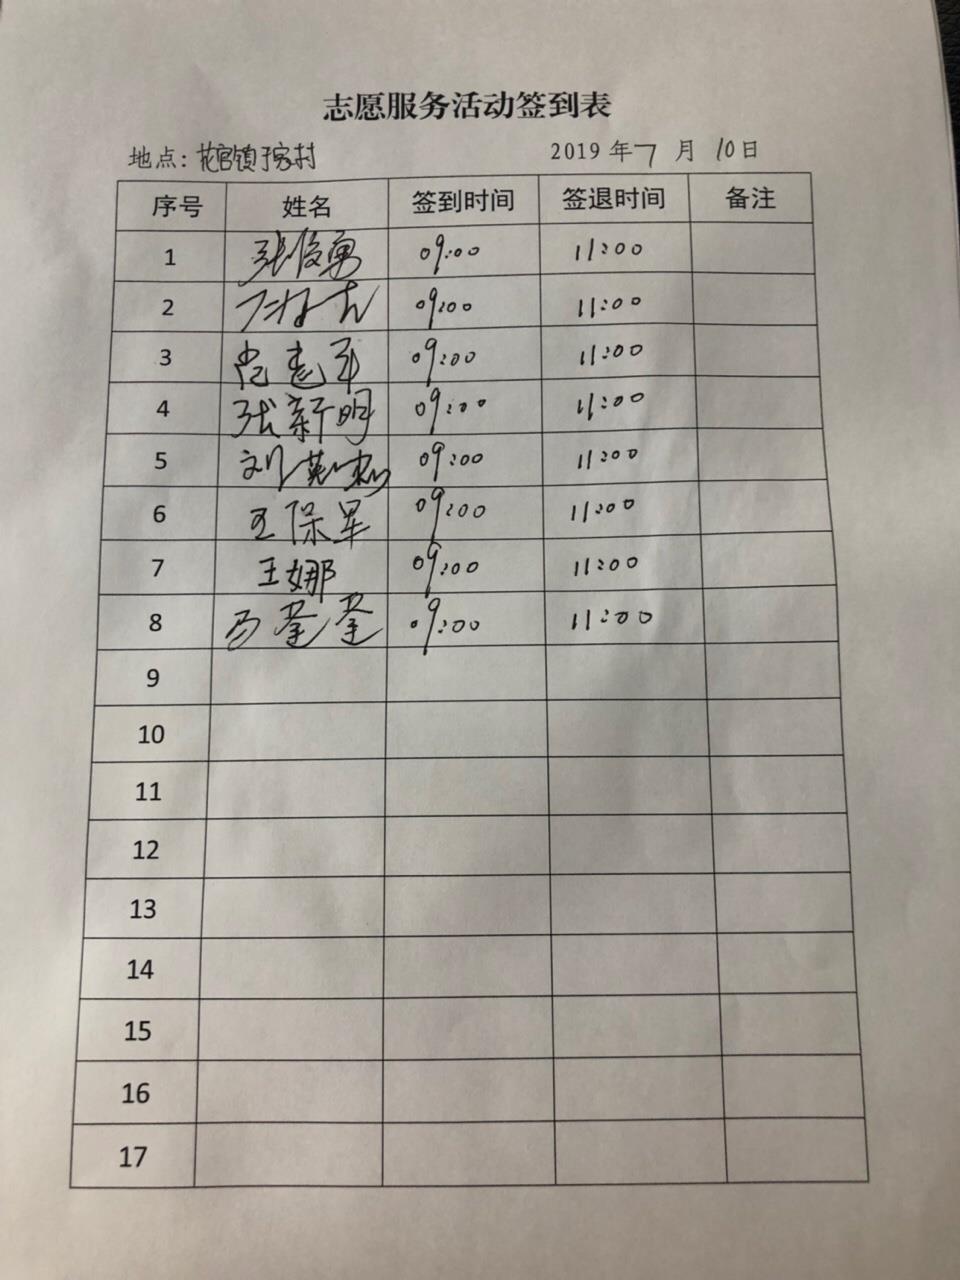 志愿服务活动签到表
地点: 花官镇于家村 2019 年 7 月 10 日
序号 姓名 签到时间 签退时间 备注
1 张俊勇 09:00 11:00
2 09:00 11:00
3 建军 09:00 11:00
4 张新明 09:00 11:00
5 刘英杰 09:00 11:00
6 王保军 09:00 11:00
7 王娜 09:00 11:00
8 09:00 11:00
9
10
11
12
13
14
15
16
17